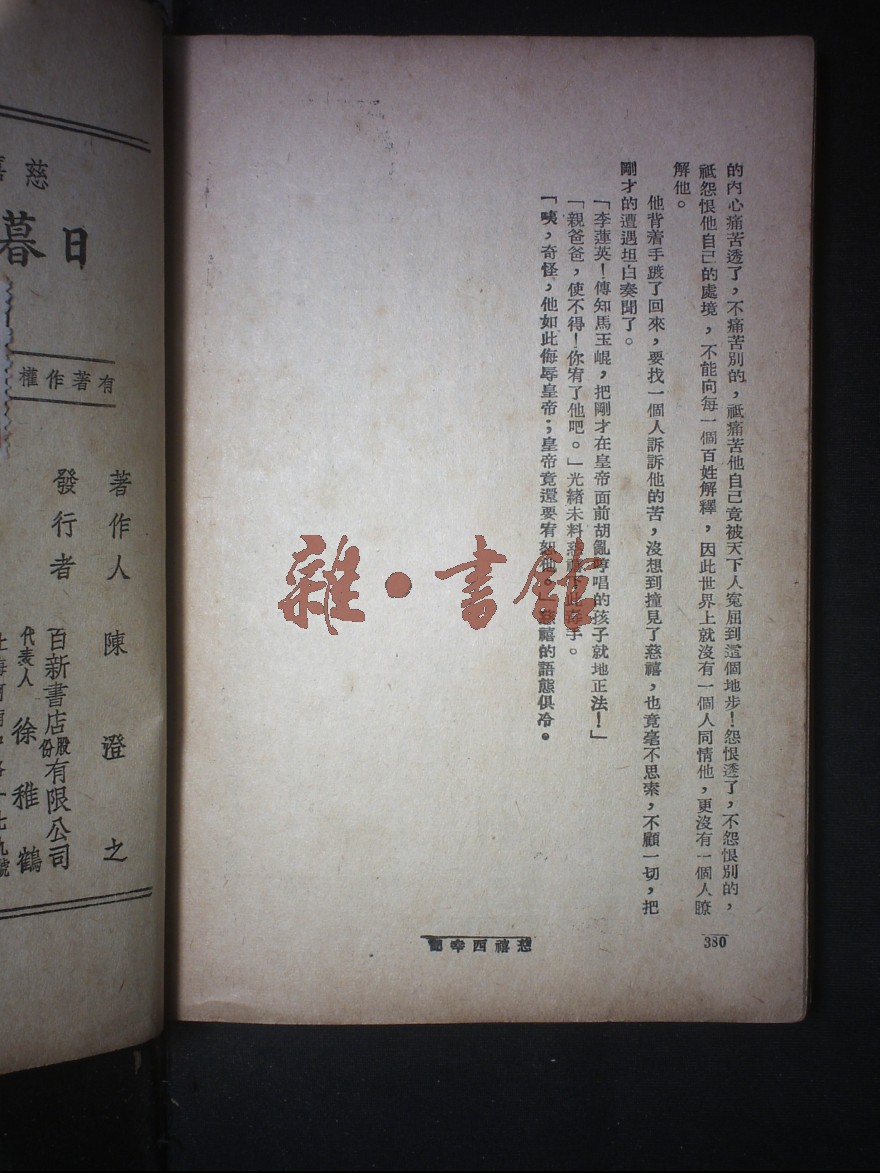 的內心痛苦透了，不痛苦別的，祇痛苦他自己竟被天下人寃屈到這個地步！怨恨透了，不怨恨別的，
祗怨恨他自己的處境，不能向每一個百姓解釋，因此世界上就沒有一個人同情他，更沒有一個人瞭
解他。
他背着手踱了回來，要找一個人訴訴他的苦，沒想到撞見了慈禧，也竟毫不思索，不顧一切，把
剛才的遭遇坦白奏聞了。
「李蓮英！傳知馬玉崐，把剛才在皇帝面前胡亂哼唱的孩子就地正法！」
「親爸爸，使不得！你宥了他吧。」光緒未料慈禧下此毒手。
「咦，奇怪，他如此侮辱皇帝；皇帝竟還要宥恕他。」慈禧的語態俱冷。
慈禧西幸記
380
雜·書館
慈禧
日暮
有著作權
著作人 陳澄之
發行者 百新書店股份有限公司
代表人 徐稚鶴